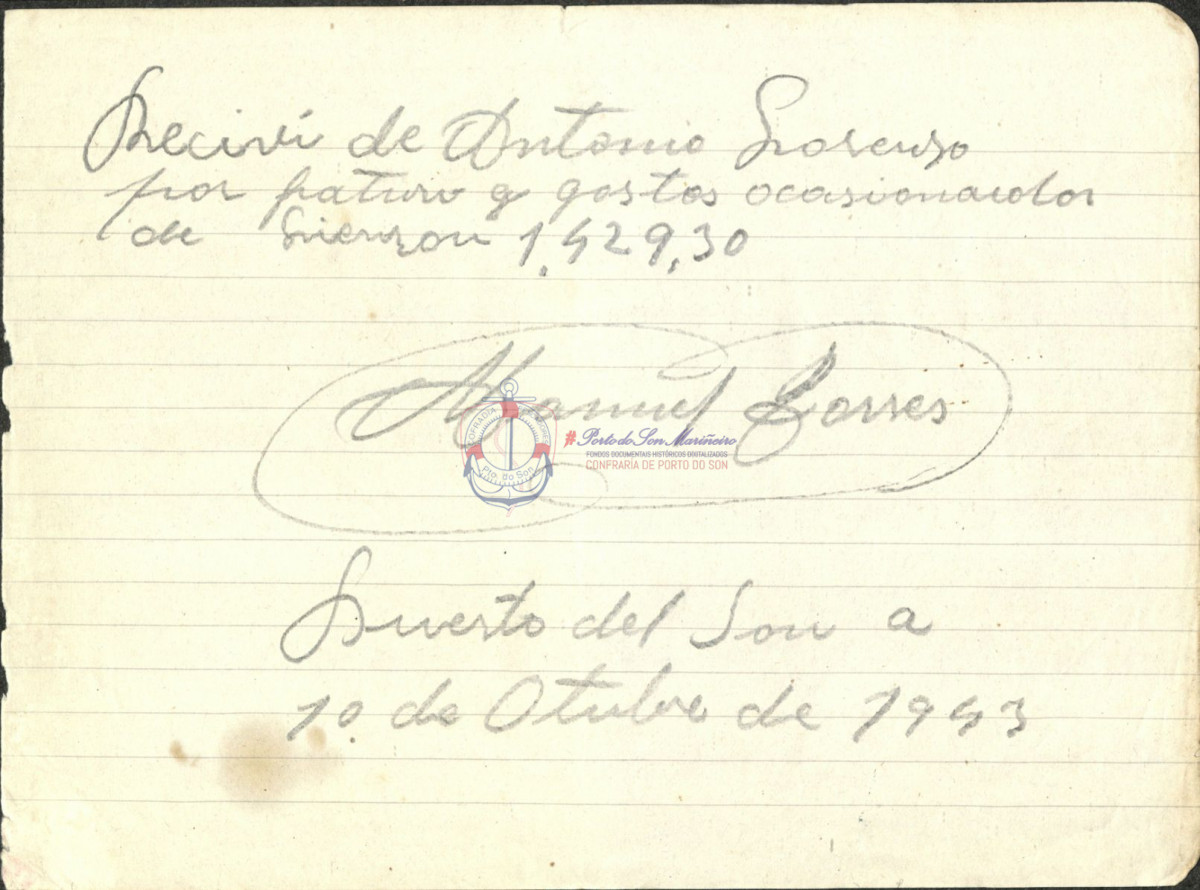 Recivi de Antonio Lorenzo
por y gastos ocasionados
de 1,429,30
Manuel Torres
COFRADIA
Pto. do Son
#PortodoSon Mariñeiro
FONDOS DOCUMENTAIS HISTÓRICOS DIGITALIZADOS
CONFRARÍA DE PORTO DO SON
Puerto del Son a
10 de Otubre de 1943